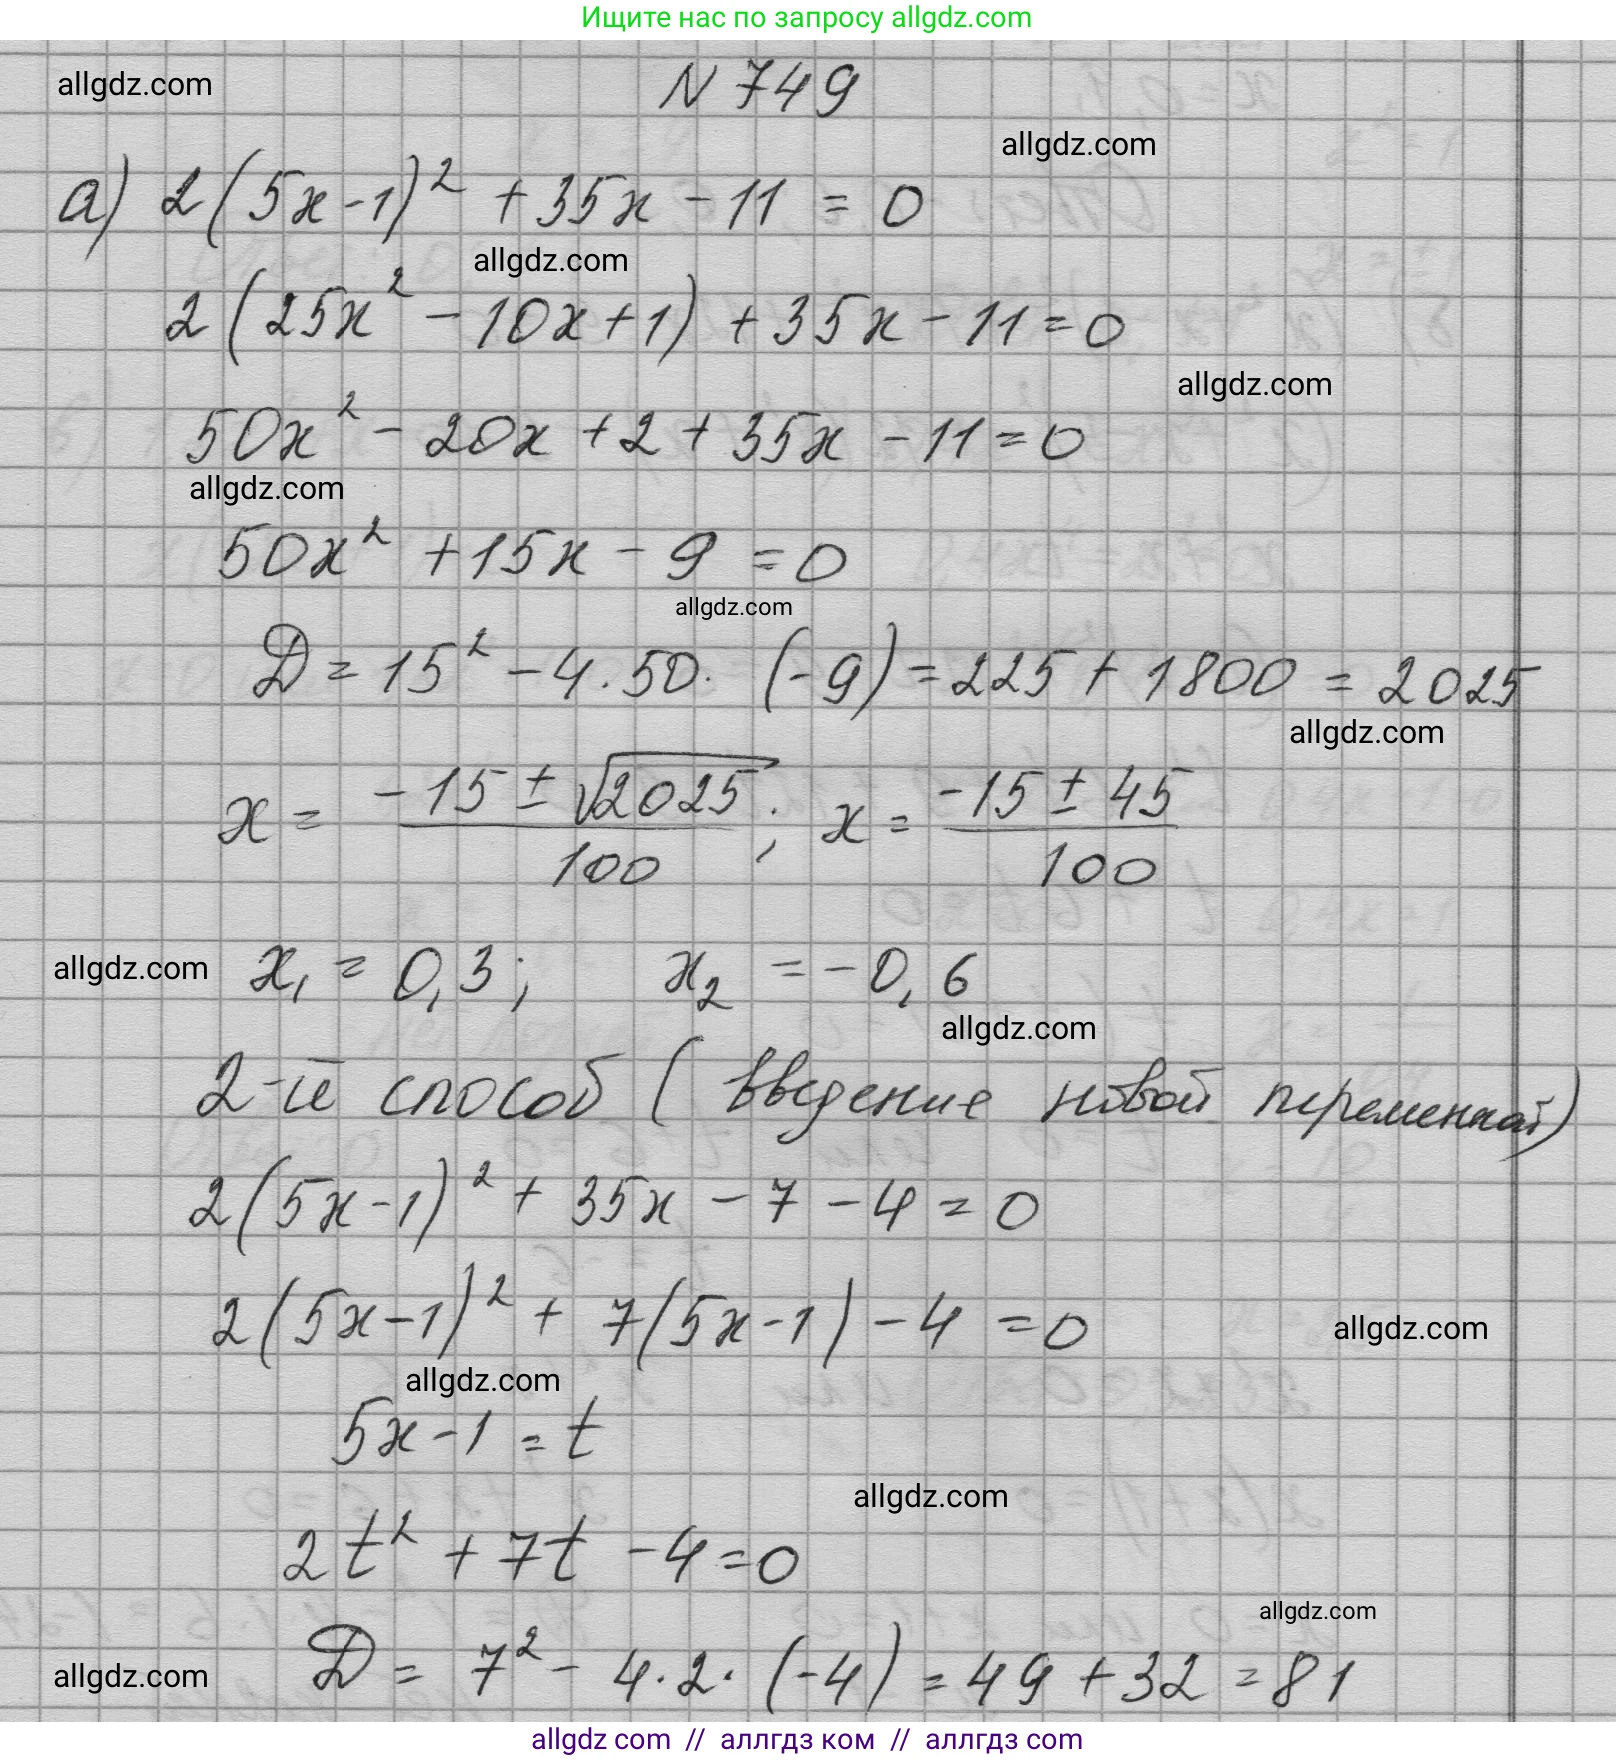 Ищите нас по запросу allgdz.com
allgdz.com
N 749
allgdz.com
а) 2(5x-1)² + 35x - 11 = 0
allgdz.com
2(25x² - 10x + 1) + 35x - 11 = 0
allgdz.com
50x² - 20x + 2 + 35x - 11 = 0
allgdz.com
50x² + 15x - 9 = 0
allgdz.com
D = 15² - 4 · 50 · (-9) = 225 + 1800 = 2025
allgdz.com
x = (-15 ± √2025)/100 ; x = (-15 ± 45)/100
allgdz.com x₁ = 0,3 ; x₂ = -0,6
allgdz.com
2-й способ (введение новой переменной)
2(5x-1)² + 35x - 7 - 4 = 0
2(5x-1)² + 7(5x-1) - 4 = 0
allgdz.com
allgdz.com
5x - 1 = t
allgdz.com
2t² + 7t - 4 = 0
allgdz.com
allgdz.com D = 7² - 4 · 2 · (-4) = 49 + 32 = 81
allgdz.com // аллгдз ком // allgdz.com